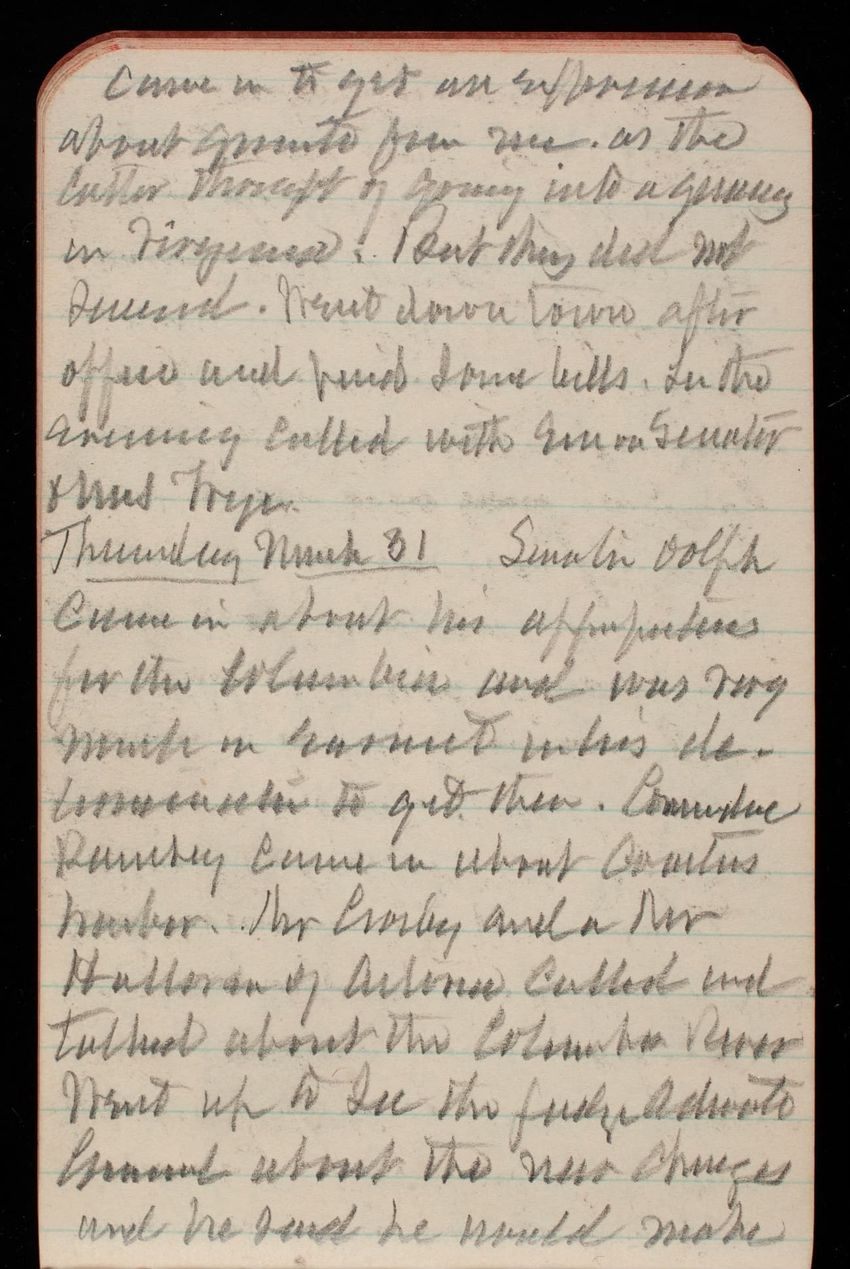 Came in to get an expression
about granite from me. as the
latter thought of going into a quarry
in Virginia. But they did not
succeed. Went down town after
office and paid some bills. In the
evening called with Emma on Senator
& Mrs Frye.
Thursday March 31 Senator Dolph
came in about his appropriations
for the Columbia and was very
much in earnest in his de-
termination to get them. Commodore
Ramsey came in about Coasters
Harbor. Mr Crosby and a Mr
Halloran of Astoria called and
talked about the Columbia River
Went up to see the Judge Advocate
General about the new charges
and he said he would make